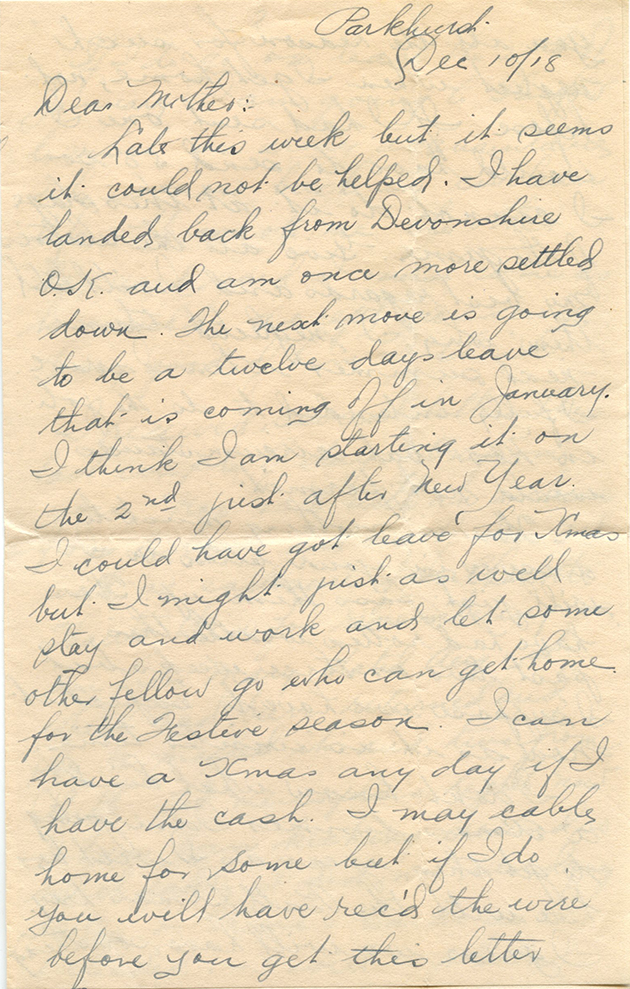 Parkhurst
Dec 10/18
Dear Mother:
Late this week but it seems
it could not be helped. I have
landed back from Devonshire
O.K. and am once more settled
down. The next move is going
to be a twelve days leave
that is coming off in January.
I think I am starting it on
the 2nd just after New Year.
I could have got leave for Xmas
but I might just as well
stay and work and let some
other fellow go who can get home
for the Festive season. I can
have a Xmas any day if I
have the cash. I may cable
home for some but if I do
you will have rec'd the wire
before you get this letter